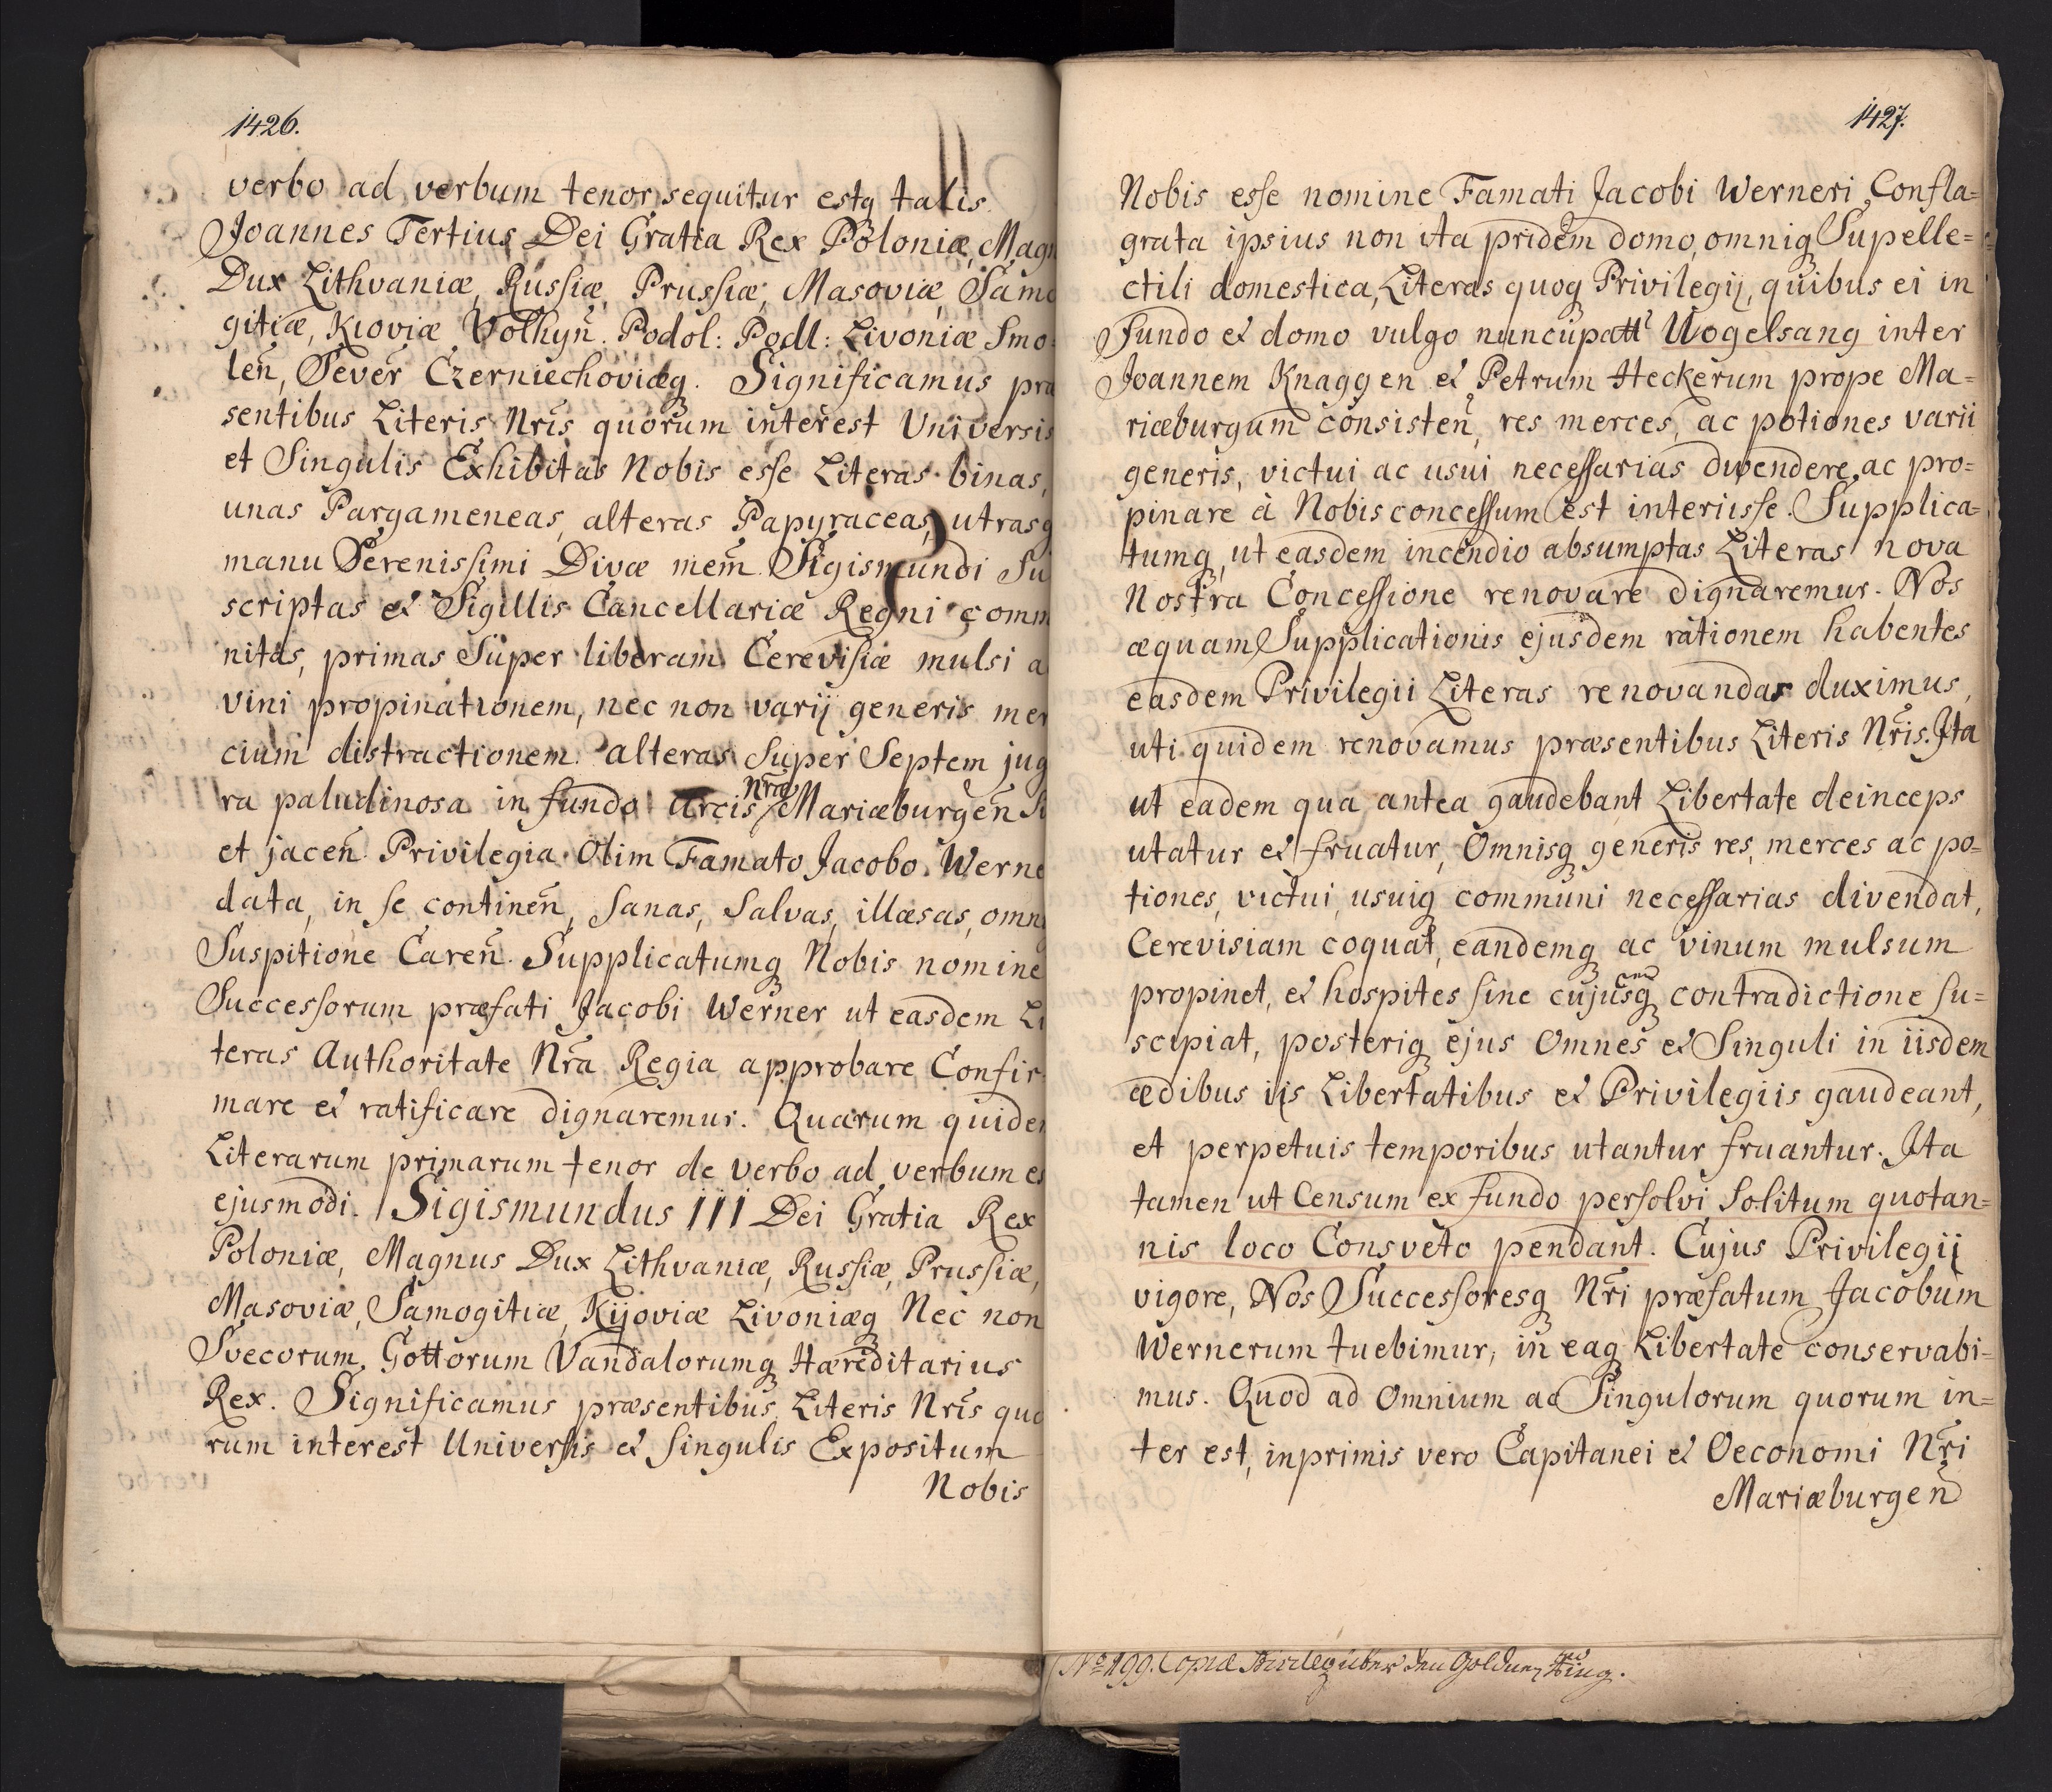 1426.
verbo ad verbum tenor sequitur estq talis.
Joannes Tertius Dei Gratia Rex Poloniæ, Magn
Dux Lithvaniæ, Russiæ, Prussiæ, Masoviæ, Samo
gitiæ, Kioviæ Volhyn̄. Podol: Podl: Livoniæ Smo=
len̄, Sever̄ Czerniechoviæq. Significamus præ
sentibus Literis Nr̄is quorum interest Universis
et Singulis Exhibitas Nobis esse Literas binas,
unas Pargameneas, alteras Papyraceas, utrasq
manu Serenissimi Divæ mem̄. Sigismundi Su
scriptas et Sigillis Cancellariæ Regni comm
nitas, primas Super liberam Cerevisiæ mulsi a
vini propinationem, nec non varij generis mer
cium distractionem. alteras Super Septem jug
ra paludinosa in fundo arcis Nr̄æ Mariæburgen̄ Si
et jacen̄ Privilegia Olim Famato Jacobo Werne
data, in se continen̄, Sanas, Salvas, illæsas, omni
Suspitione Caren̄. Supplicatumq Nobis nomine
Successorum præfati Jacobi Werner ut easdem Li
teras Authoritate Nr̄a Regia approbare Confir=
mare et ratificare dignaremur. Quarum quidem
Literarum primarum tenor de verbo ad verbum es
ejusmodi. Sigismundus III Dei Gratia Rex
Poloniæ, Magnus Dux Lithvaniæ, Russiæ, Prussiæ,
Masoviæ, Samogitiæ, Kijoviæ Livoniæq Nec non
Svecorum, Gottorum Vandalorumq Hæreditarius
Rex. Significamus præsentibus Literis Nr̄is quo
rum interest Universis et Singulis Expositum
Nobis
1427.
Nobis esse nomine Famati Jacobi Werneri Confla=
grata ipsius non ita pridem domo, omniq Supelle=
ctili domestica, Literas quoq Privilegij, quibus ei in
fundo et domo vulgo nuncupatt Wogelsang inter
Joannem Knaggen et Petrum Heckerum prope Ma=
riæburgum consisten̄, res merces, ac potiones varii
generis, victui ac usui necessarias divendere, ac pro=
pinare à Nobis concessum est interiisse. Supplica=
tumq, ut easdem incendio absumptas Literas nova
Nostra Concessione renovare dignaremur. Nos
æquam Supplicationis ejusdem rationem habentes
easdem Privilegii Literas renovandas duximus,
uti quidem renovamus præsentibus Literis Nr̄is. Ita
ut eadem qua antea gaudebant Libertate deinceps
utatur et fruatur, Omnisq generis res, merces ac po=
tiones, victui, usuiq communi necessarias divendat,
Cerevisiam coquat, eandemq ac vinum mulsum
propinet, et hospites sine cujusq contradictione su=
scipiat, posteriq ejus Omnes et Singuli in iisdem
ædibus iis Libertatibus et Privilegiis gaudeant,
et perpetuis temporibus utantur fruantur. Ita
tamen ut Censum ex fundo persolvi Solitum quotan=
nis loco Consveto pendant. Cujus Privilegij
vigore, Nos Successoresq Nr̄i præfatum Jacobum
Wernerum tuebimur, in eaq Libertate conservabi=
mus. Quod ad Omnium ac Singulorum quorum in=
ter est, inprimis vero Capitanei et Oeconomi Nr̄i
Mariæburgen̄
No 199. Copia Privileg über den Golduen Ring.